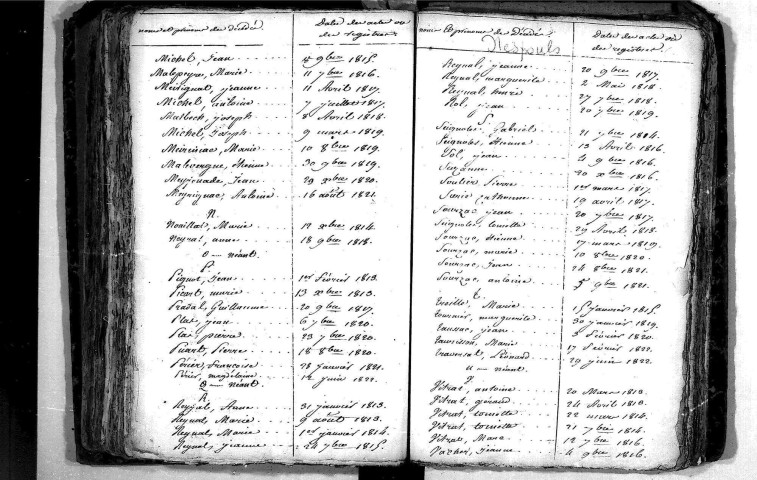 nom et prénom du décédé.
Date des actes ou des registres
Michel, Jean 8 9bre 1815.
Malepeyre, Marie 11 7bre 1816.
Meirignat, jeanne 11 Avril 1817.
Michel, antoine 7 juillet 1817.
Malbech, joseph 8 Avril 1818.
Michel, Joseph 9 mars 1819.
Marie 10 8bre 1819.
Malevergne, 30 9bre 1819.
Jean 29 xbre 1820.
Meyrignac, Antoine 16 août 1821.
N.
Nouillat, Marie 12 xbre 1814.
Neyrat, anne 18 9bre 1818.
O — néant
P.
Pignot, Jean 1er février 1813.
Picart, marie 13 xbre 1813.
Pradal, Guillaume 20 9bre 1817.
jean 6 7bre 1820.
pierre 23 7bre 1820.
Pierre 18 8bre 1820.
Périer, françoise 28 janvier 1821.
Périer, magdelaine 12 juin 1822.
Q — néant.
R
Reynal, Anne 31 janvier 1813.
Reynal, Marie 9 août 1813.
Reynal, Marie 1er janvier 1814.
Reynal, jeanne 24 7bre 1815.
noms et prénoms des Décédés
Date des actes ou des registres
Nespouls
Reynal, jeanne 20 9bre 1817.
Reynal, marguerite 2 Mai 1818.
Reynal, 27 7bre 1818.
jean 20 7bre 1819.
S.
Seignolet, Gabriel 21 7bre 1814.
Seignolet, Etienne 13 Avril 1816.
Sol, jean 4 9bre 1816.
Suzanne 20 xbre 1816.
Soulier, Pierre 1er mars 1817.
Catherine 19 avril 1817.
Sourzac, jean 20 7bre 1817.
Seignolet, toinette 29 Avril 1818.
Sourzac, Etienne 17 mars 1819.
Sourzac, marie 10 8bre 1820.
Sourzac, Jean 24 8bre 1821.
Sourzac, antoine 5 9bre 1821.
T.
Treille, Marie 15 janvier 1815.
marguerite 30 janvier 1819.
jean 3 février 1820.
Marie 17 février 1822.
Léonard 29 juin 1822.
U — néant.
V
Vitrat, antoine 20 Mars 1813.
Vitrat, gérard 24 Avril 1813.
Vitrat, toinette 22 mars 1814.
Vitrat, toinette 21 7bre 1814.
Vitrat, Marie 12 7bre 1816.
Vacher, Jeanne 4 9bre 1816.